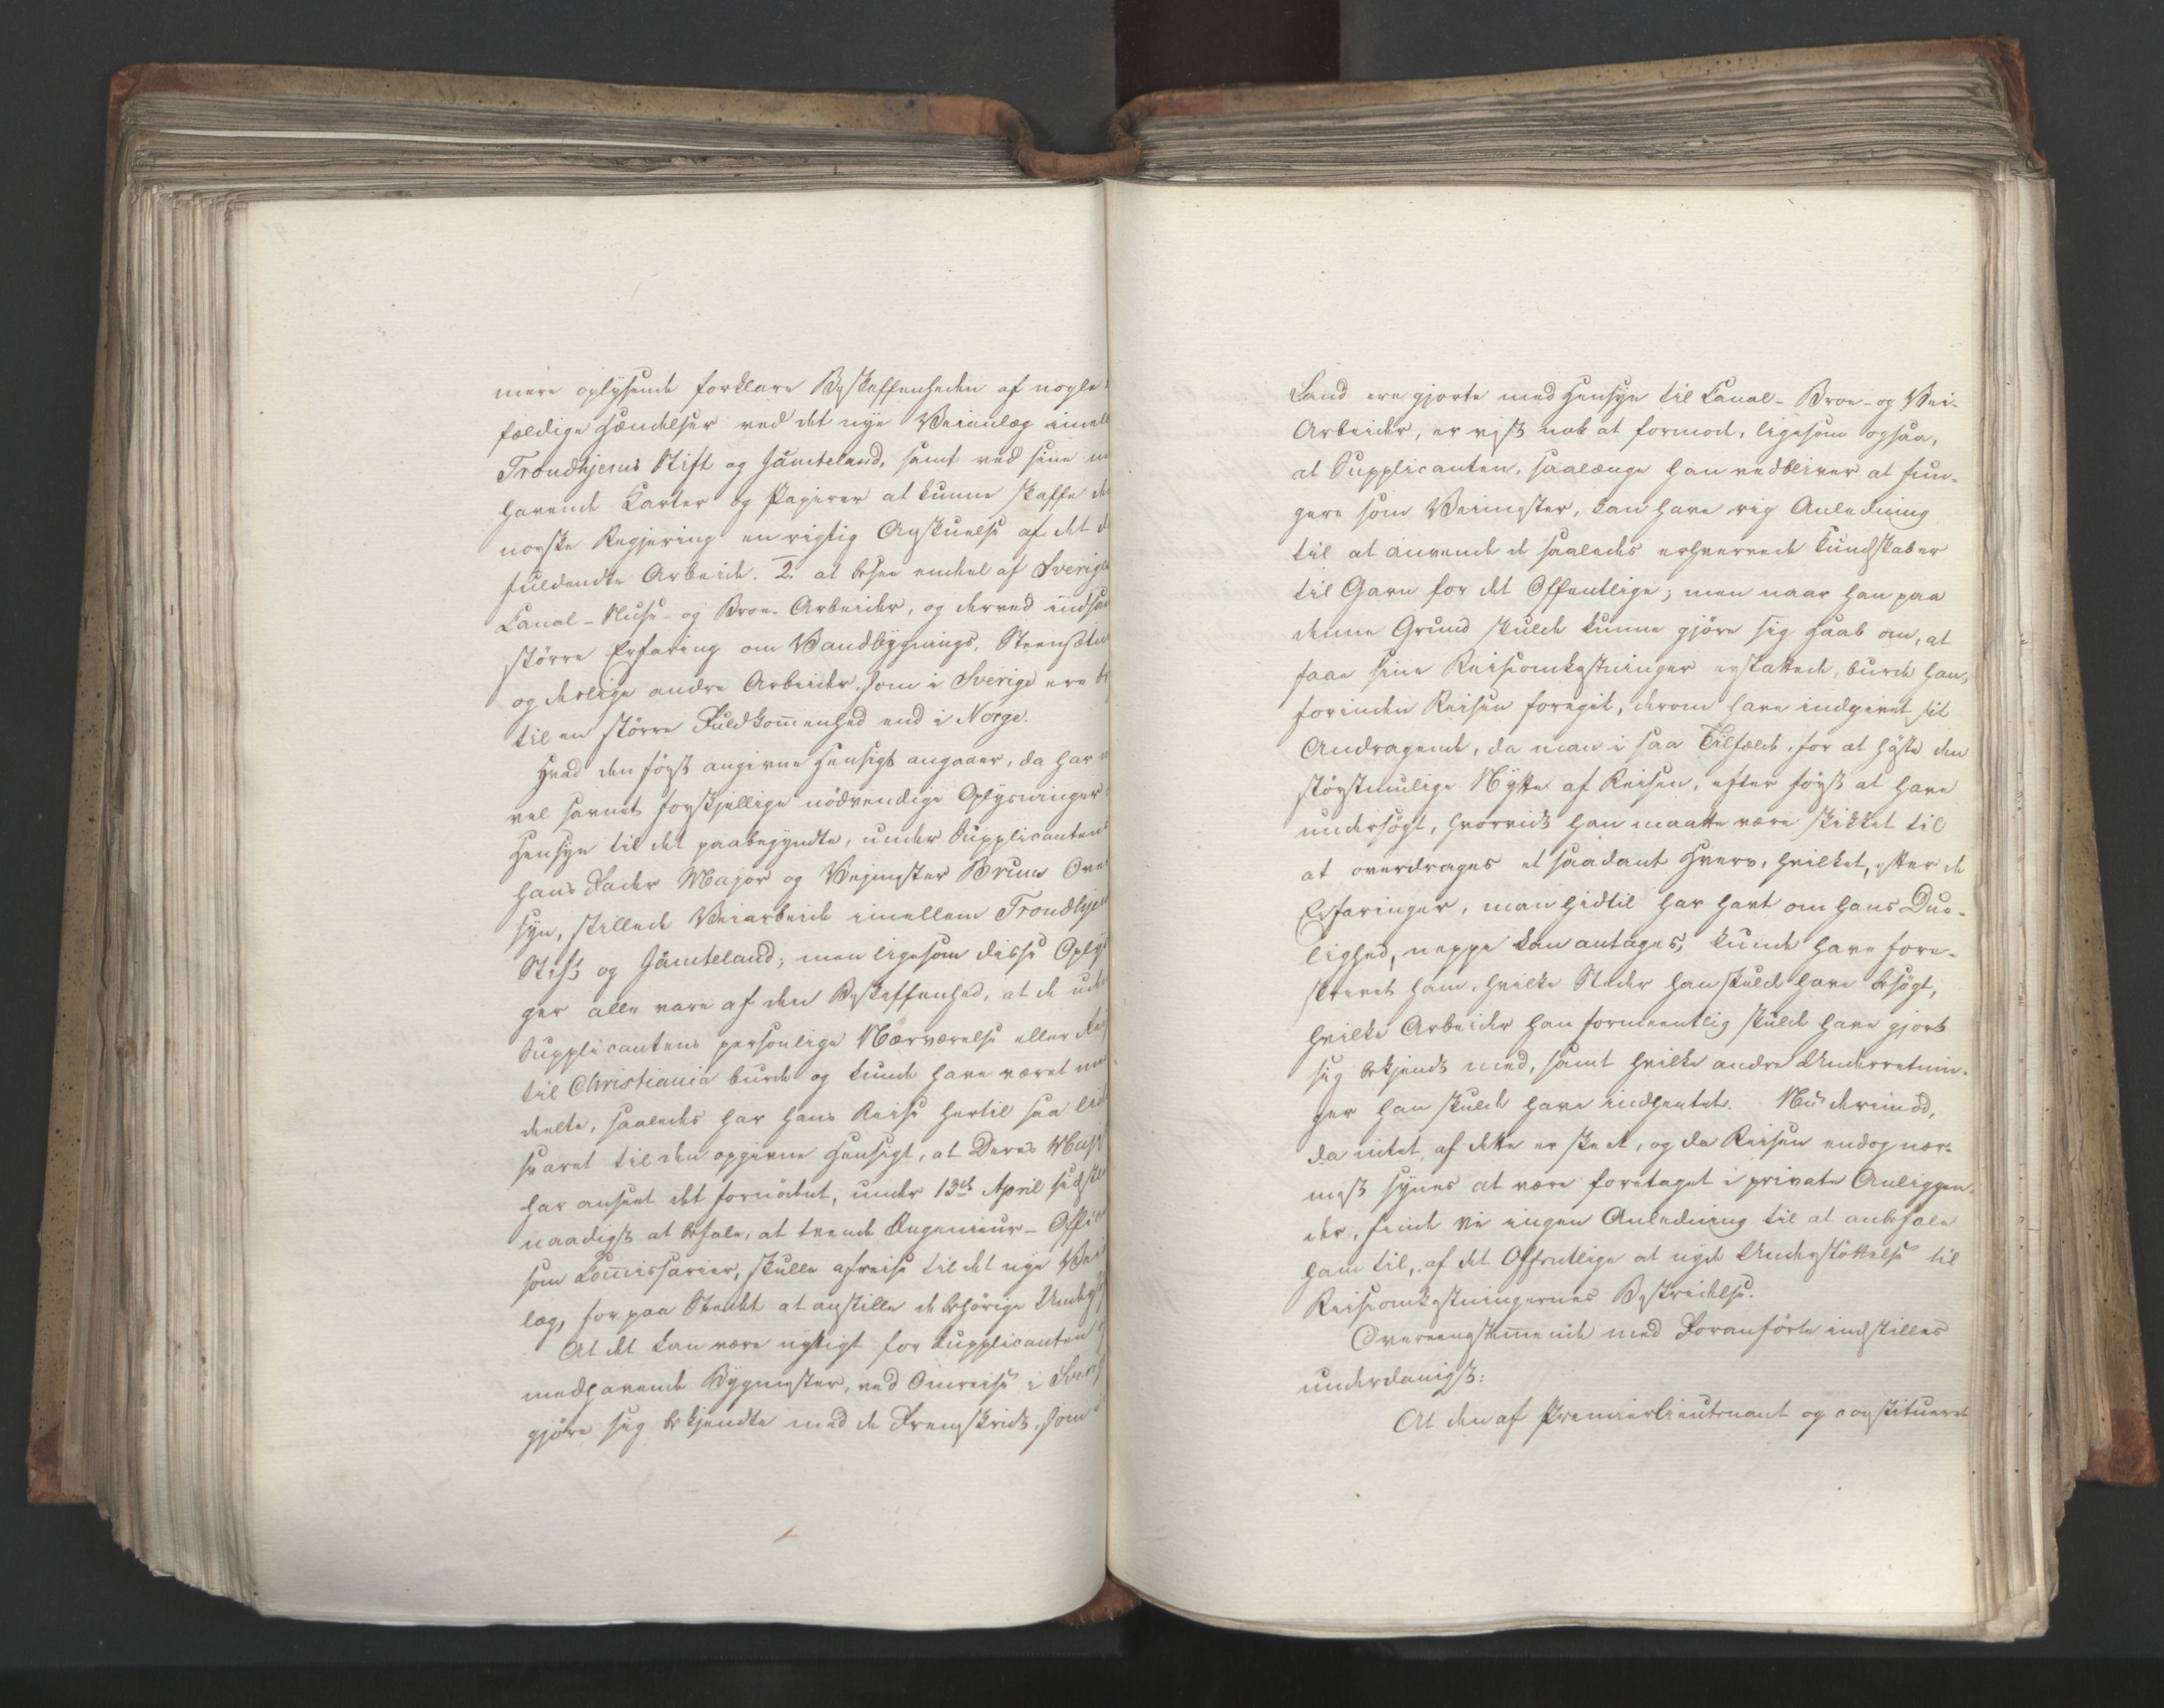 mere oplysende forklare Beskaffenheden af nogle
fældige Hændelser ved det nye Veianlæg imell
Trondhjems Stift og Jämteland, samt ved sine m
havende Karter og Papirer at kunne skaffe de
norske Regjering en rigtig Anskuelse af det d
fuldendte Arbeide. 2. at besee endeel af Sverige
Canal- Sluse- og Broe- Arbeider, og derved indsa
større Erfaring om Vandbygnings,
og deslige andre Arbeider, som i Sverige ere br
til en større Fuldkommenhed end i Norge.
Hvad den først angivne Hensigt angaaer, da har
vel savnet forskjellige nödvendige Oplysninger
Hensyn til det paabegyndte, under Supplicanten
hans Fader Major og Vejmester Bruns Ove
syn, stillede Veiarbeide imellem Trondhjem
Stift og Jämteland; men ligesom disse Oply
ger alle vare af den Beskaffenhed, at de ude
Supplicantens personlige Nærværelse eller Re
til Christiania burde og kunde have været med
deelte, saaledes har hans Reise hertil saa lid
svaret til den opgivne Hensigt, at Deres Maj
har anseet det fornødent, under 13de April sidste
naadigst at befale, at tvende Ingenieur- Offic
som Commissarier, skulle afreise til det nye Vei
læg, for paa Stedet at anstille de behörige Unders
At det kan være nyttigt for Supplicanten
medhavende Bygmester, ved Omreise i Sverig
gjöre sig bekjendte med de Fremskridt, som i
Land ere gjorte med Hensyn til Canal- Broe- og Vei-
Arbeider, er vist nok at formode, ligesom ogsaa,
at Supplicanten, saalænge han vedbliver at fun-
gere som Veimester, kan have rig Anledning
til at anvende de saaledes erhvervede Kundskaber
til Gavn for det Offentlige; men naar han paa
denne Grund skulde kunne gjöre sig Haab om, at
faae sine Reiseomkostninger erstattede, burde han,
forinden Reisen foregik, derom have indgivet sit
Andragende, da man i saa Tilfælde, for at høste den
størstmulige Nytte af Reisen, efter først at have
undersögt, hvorvidt han maatte være skikket til
at overdrages et saadant Hverv, hvilket, efter de
Erfaringer, man hidtil har havt om hans Due-
lighed, neppe kan antages, kunde have fore-
skrevet ham, hvilke Steder han skulde have besögt,
hvilke Arbeider han formeentlig skulde have gjort
sig bekjendt med, samt hvilke andre Underretnin-
ger han skulde have indhentet. Nu derimod,
da intet af dette er skeet, og da Reisen endog nær-
mest synes at være foretaget i private Anliggen-
der, finde vi ingen Anledning til at anbefale
ham til, af det Offentlige at nyde Understöttelse til
Reiseomkostningernes Bestridelse.
Overeensstemmende med Foranförte indstilles
underdanigst:
At den af Premierlieutenant og constitueret